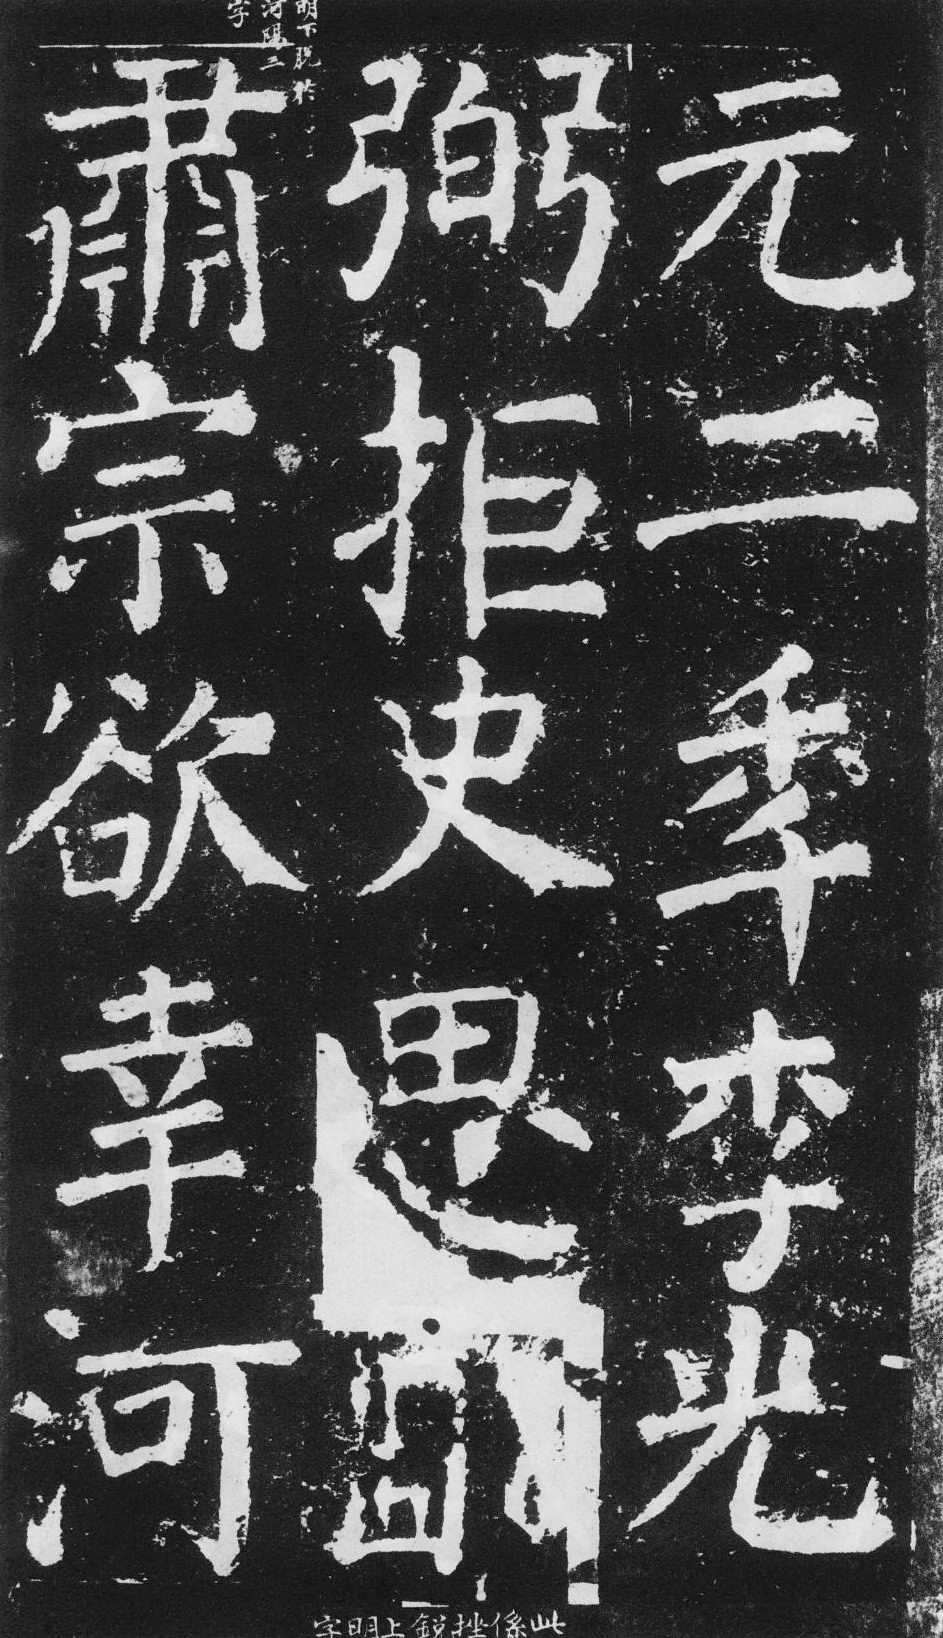 元二秊李光
弼拒史思明
肅宗欲幸河
明下脫於
河陽三
字
此係挫銳上明字